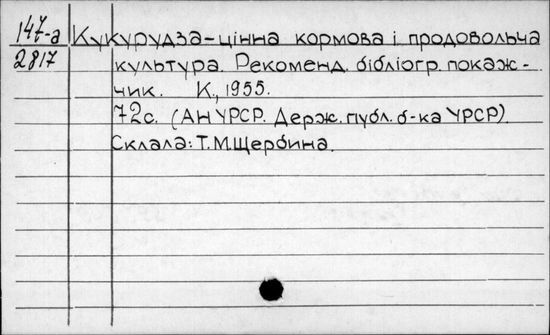 147-а Кукурудза-цінна кормова і продовольча
2817 культура. Рекоменд. бібліогр. покаж-
чик. К., 1955.
72с. (АН УРСР. Держ. публ. б-ка УРСР).
Склала: Т.М.Щербина.